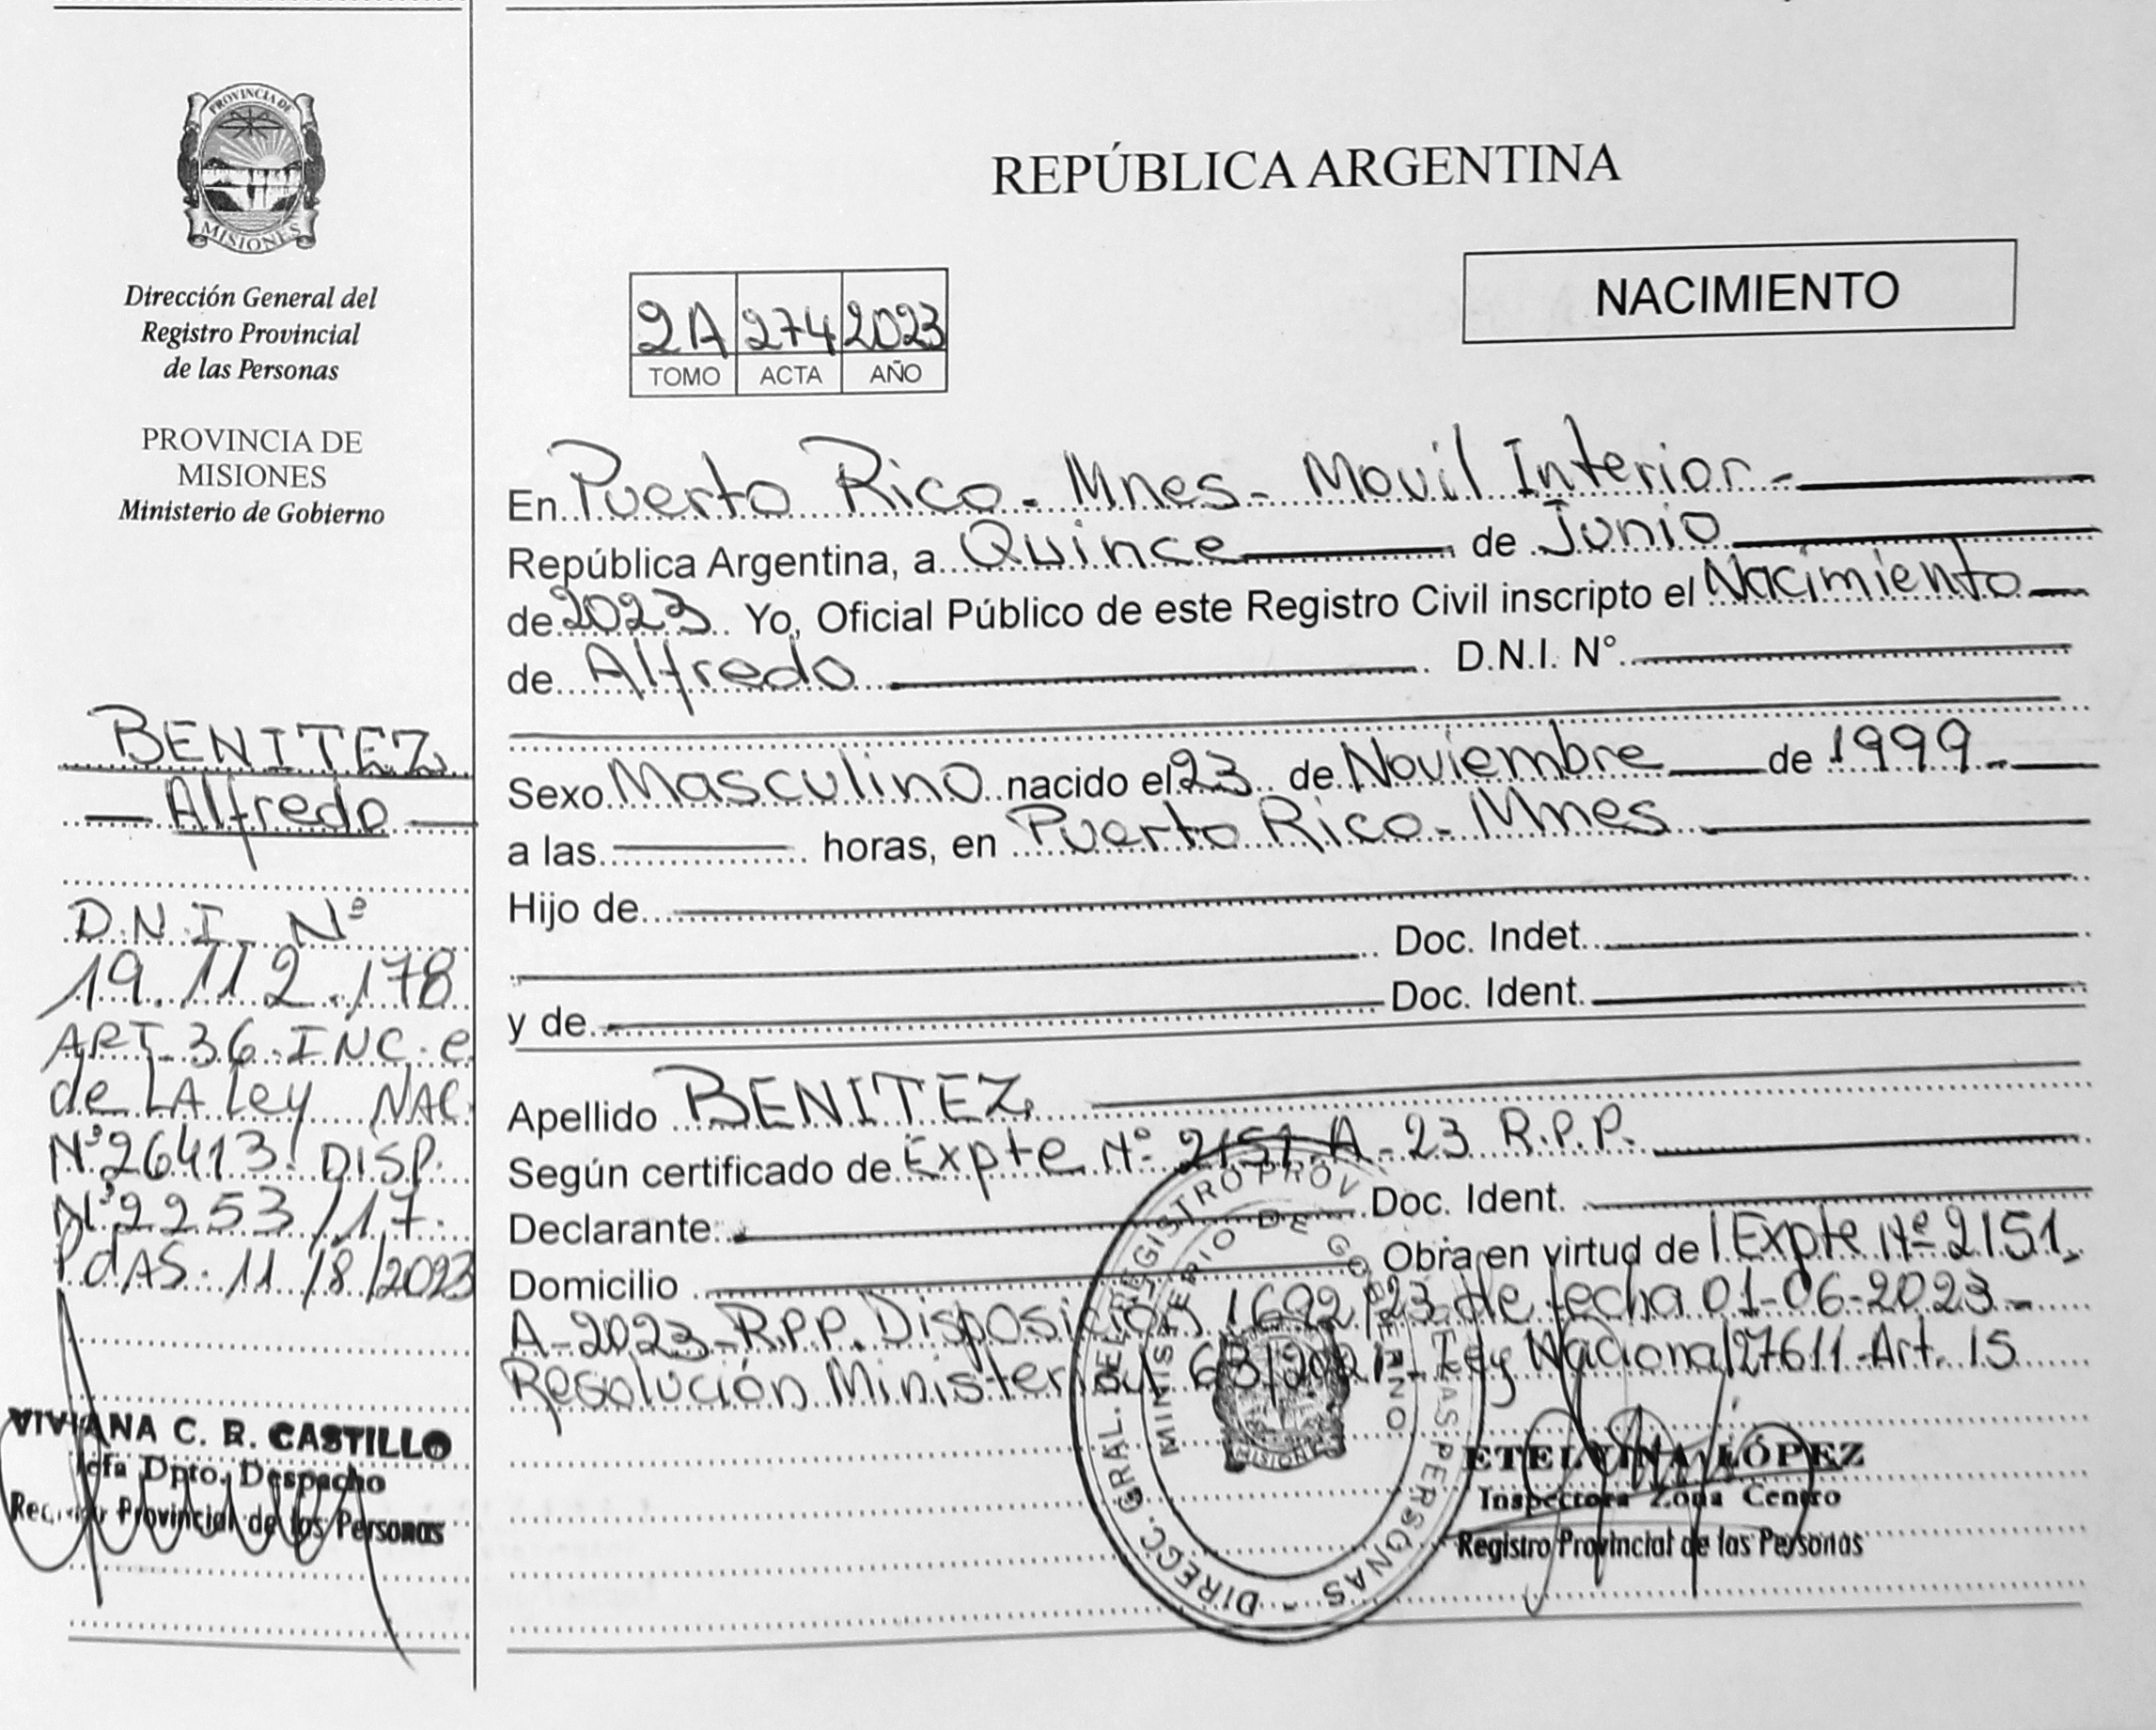 PROVINCIA DE
MISIONES
Dirección General del
Registro Provincial
de las Personas
PROVINCIA DE
MISIONES
Ministerio de Gobierno
BENITEZ
Alfredo
D.N.I. Nº
19.112.178
ART. 36. INC. e
de LA Ley NAC.
Nº 26413. DISP.
Nº 2253/17.
PdAS. 11/8/2023
VIVIANA C. R. CASTILLO
Jefa Dpto. Despacho
Registro Provincial de las Personas
REPÚBLICA ARGENTINA
NACIMIENTO
2A 274 2023
TOMO ACTA AÑO
En Puerto Rico - Mnes - Movil Interior -
República Argentina, a Quince de Junio
de 2023 Yo, Oficial Público de este Registro Civil inscripto el Nacimiento
de Alfredo D.N.I. N°
Sexo Masculino nacido el 23 de Noviembre de 1999 -
a las horas, en Puerto Rico - Mnes
Hijo de
Doc. Indet.
y de Doc. Ident.
Apellido BENITEZ
Según certificado de Expte Nº 2151-A-23 R.P.P.
Declarante: Doc. Ident.
Domicilio Obra en virtud del Expte Nº 2151-
A-2023-R.P.P. Disposición 1692/23 de fecha 01-06-2023 -
Resolución Ministerial 63/2021 - Ley Nacional 27611 - Art. 15
DIRECC. GRAL. DEL REGISTRO PROV. DE LAS PERSONAS -
MINISTERIO DE GOBIERNO
MISIONES
ETELVINA LÓPEZ
Inspectora Zona Centro
Registro Provincial de las Personas